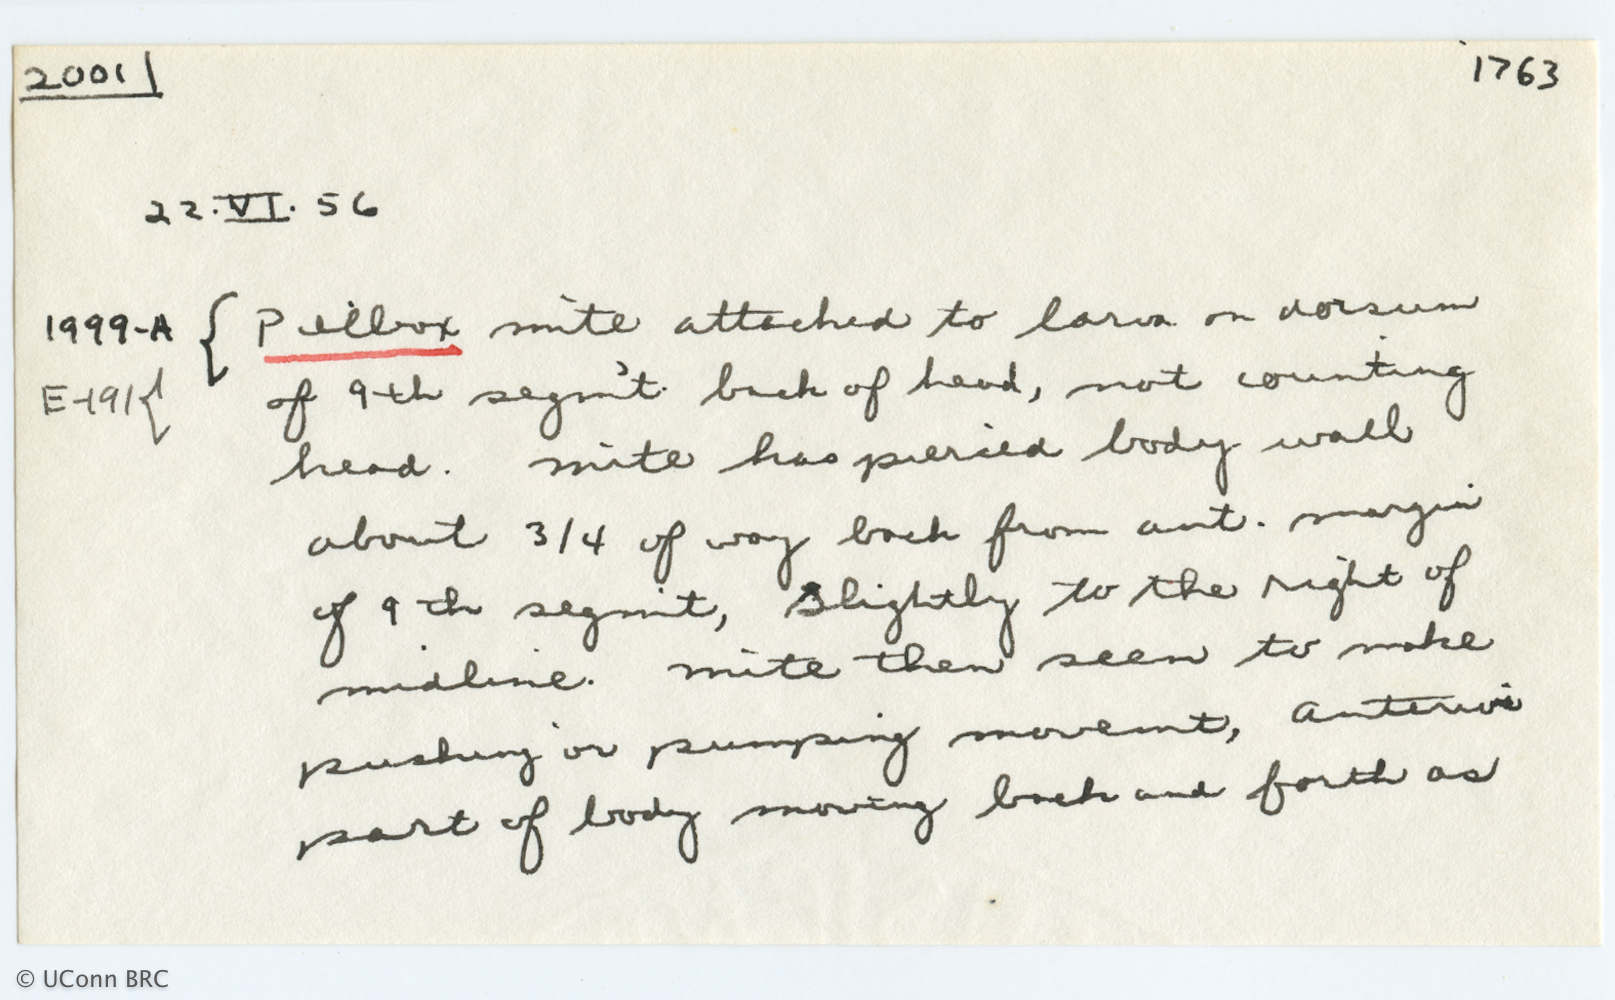 2001 1763
22.VI.56
1999-A { Pillbox mite attached to larva on dorsum
E-191 { of 9th segm't. back of head, not counting
head. Mite has pierced body wall
about 3/4 of way back from ant. margin
of 9th segmt, slightly to the right of
midline. Mite then seen to make
pushing or pumping movemt, anterior
part of body moving back and forth as
© UConn BRC